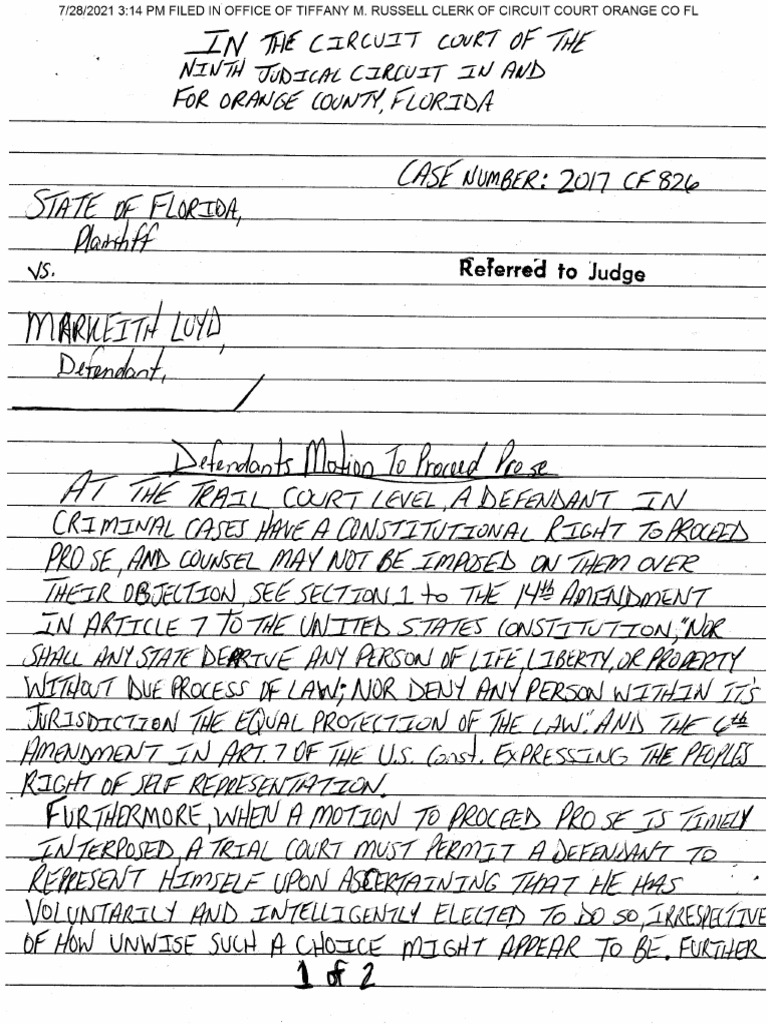 7/28/2021 3:14 PM FILED IN OFFICE OF TIFFANY M. RUSSELL CLERK OF CIRCUIT COURT ORANGE CO FL
IN THE CIRCUIT COURT OF THE
NINTH JUDICAL CIRCUIT IN AND
FOR ORANGE COUNTY, FLORIDA
CASE NUMBER: 2017 CF 826
STATE OF FLORIDA,
Plaintiff
vs.
Referred to Judge
MARKEITH LOYD,
Defendant,
Defendants Motion To Proceed Pro se
AT THE TRAIL COURT LEVEL, A DEFENDANT IN
CRIMINAL CASES HAVE A CONSTITUTIONAL RIGHT TO PROCEED
PRO SE, AND COUNSEL MAY NOT BE IMPOSED ON THEM OVER
THEIR OBJECTION, SEE SECTION 1 to THE 14th AMENDMENT
IN ARTICLE 7 TO THE UNITED STATES CONSTITUTION, "NOR
SHALL ANY STATE DEPRIVE ANY PERSON OF LIFE LIBERTY, OR PROPERTY
WITHOUT DUE PROCESS OF LAW; NOR DENY ANY PERSON WITHIN IT'S
JURISDICTION THE EQUAL PROTECTION OF THE LAW." AND THE 6th
AMENDMENT IN ART. 7 OF THE U.S. Const. EXPRESSING THE PEOPLES
RIGHT OF SELF REPRESENTATION.
FURTHERMORE, WHEN A MOTION TO PROCEED PRO SE IS TIMELY
INTERPOSED, A TRIAL COURT MUST PERMIT A DEFENDANT TO
REPRESENT HIMSELF UPON ASCERTAINING THAT HE HAS
VOLUNTARILY AND INTELLIGENTLY ELECTED TO DO SO, IRRESPECTIVE
OF HOW UNWISE SUCH A CHOICE MIGHT APPEAR TO BE. FURTHER
1 of 2